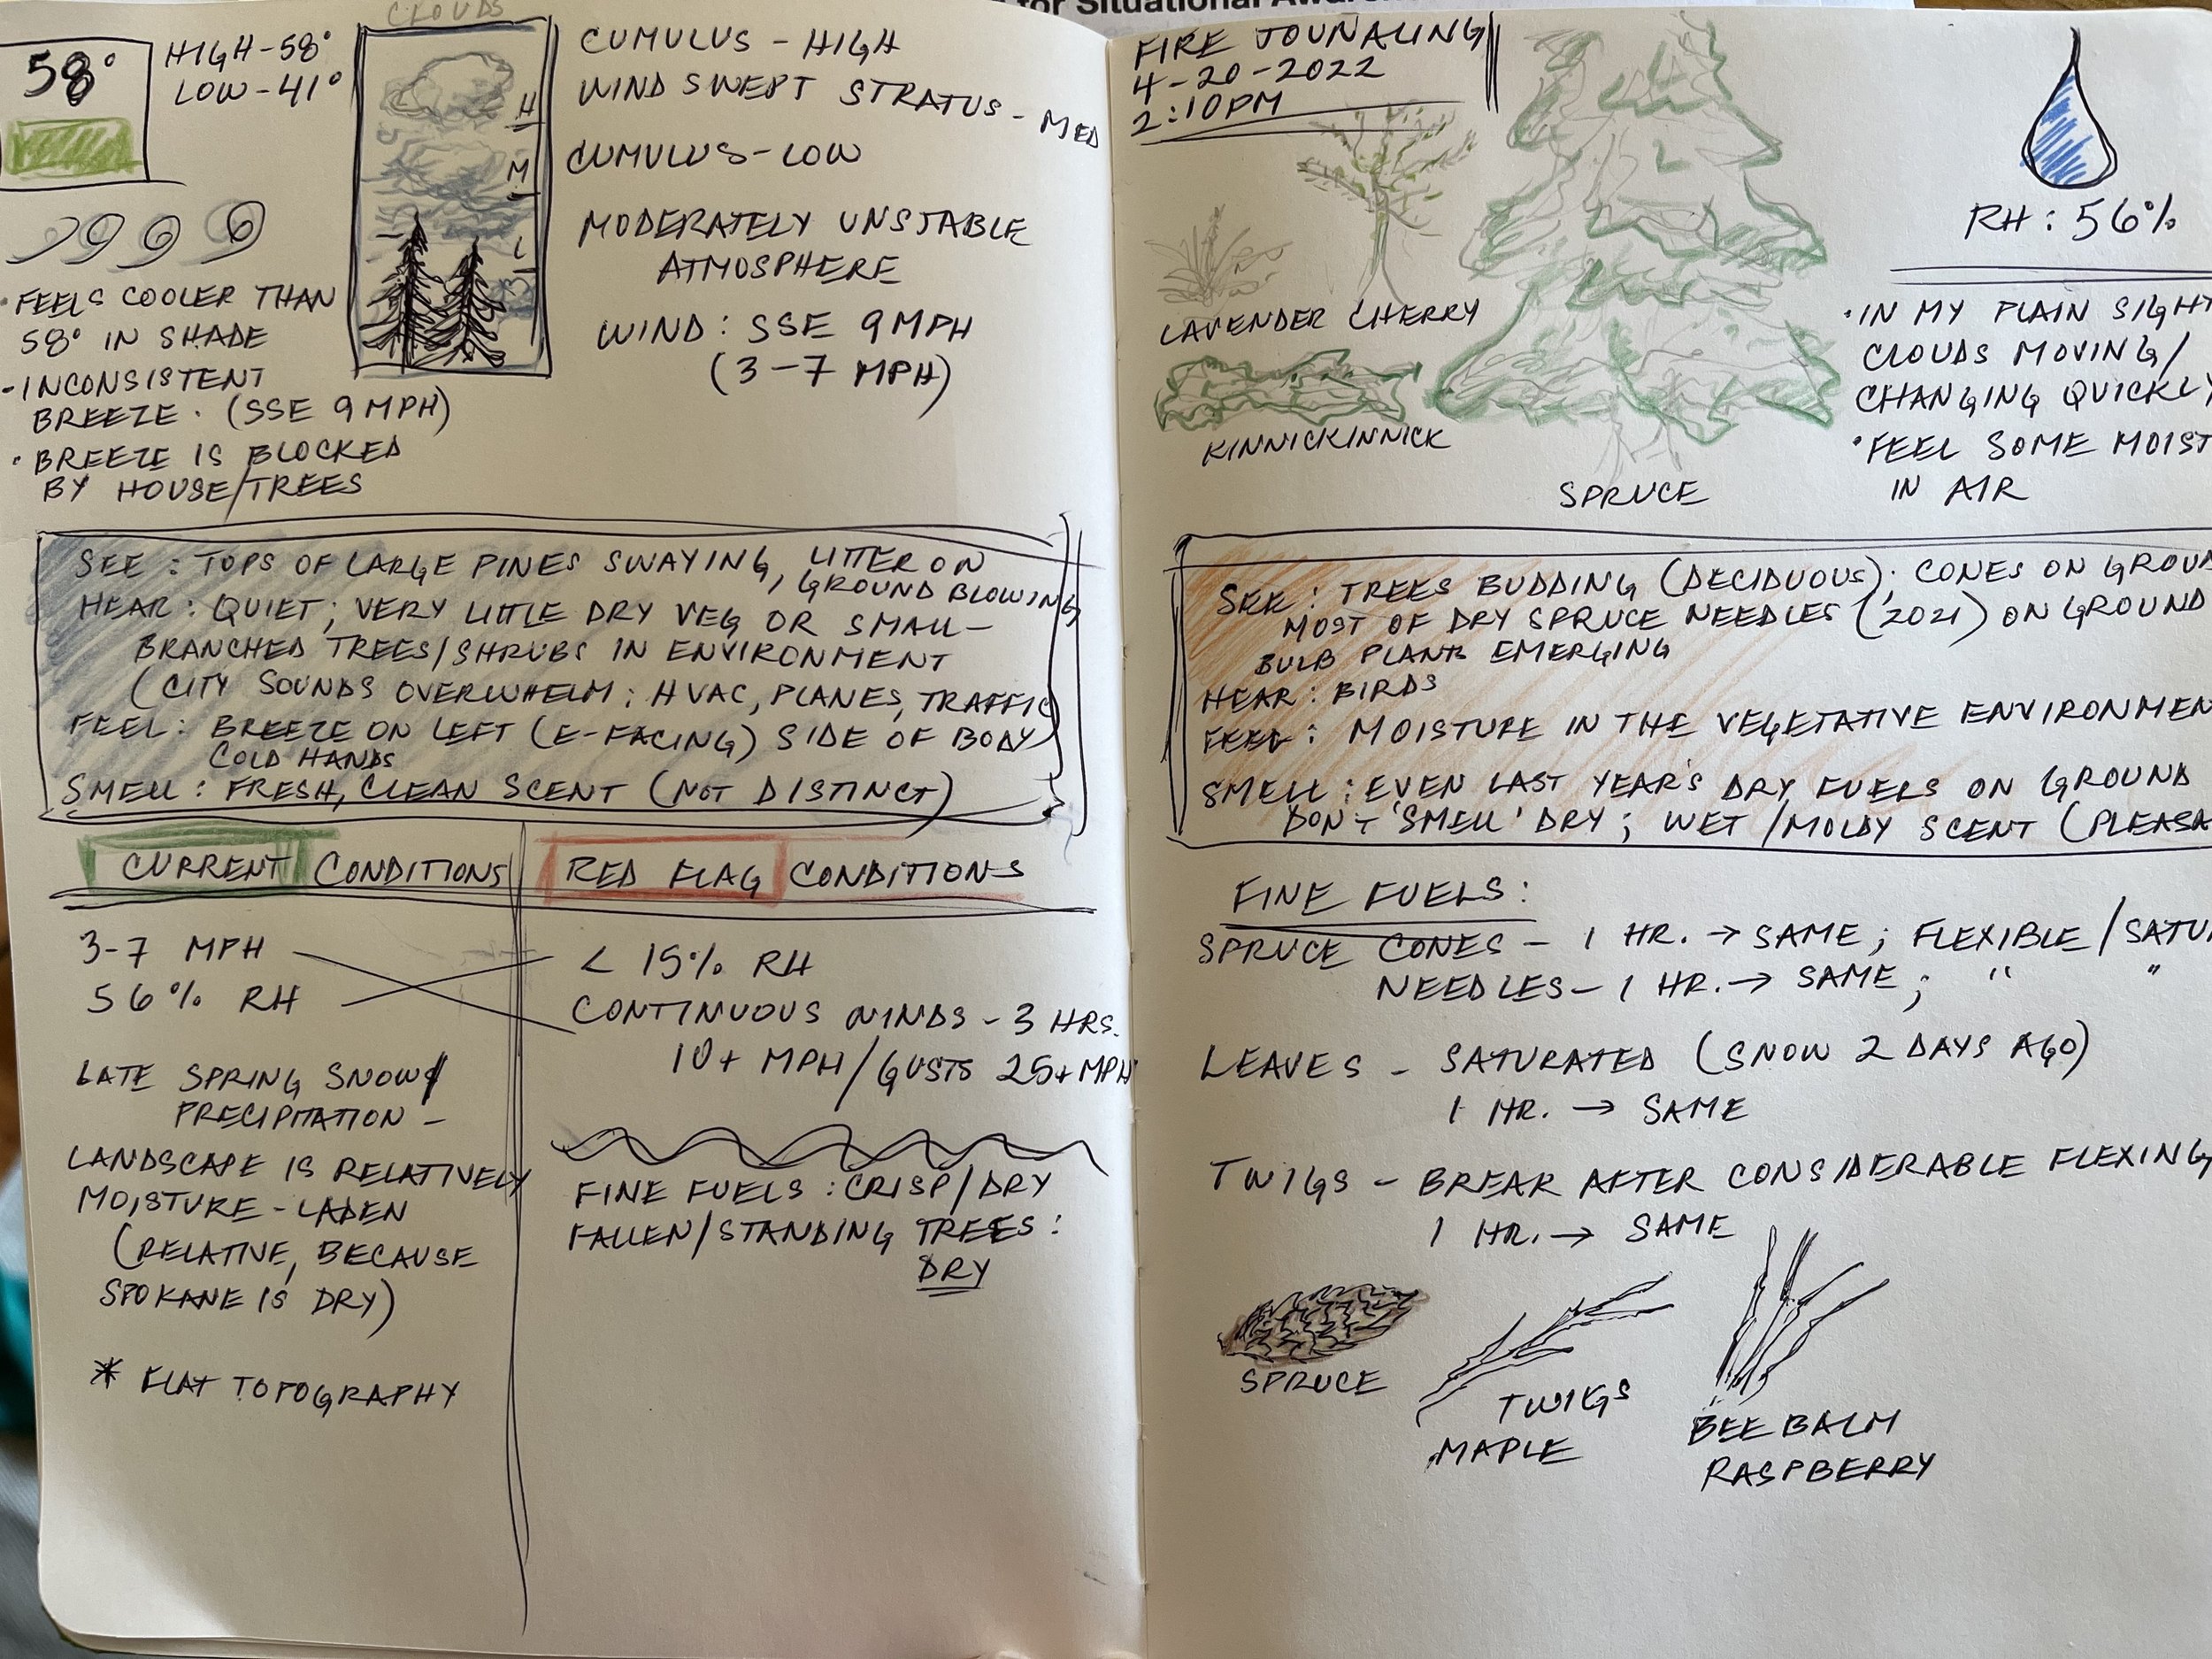 for Situational Awar
CLOUDS
58°
HIGH-58°
LOW-41°
H
M
L
CUMULUS - HIGH
WIND SWEPT STRATUS - MED
CUMULUS-LOW
MODERATELY UNSTABLE
ATMOSPHERE
WIND: SSE 9MPH
(3-7 MPH)
• FEELS COOLER THAN
58° IN SHADE
- INCONSISTENT
BREEZE. (SSE 9MPH)
• BREEZE IS BLOCKED
BY HOUSE/TREES
SEE: TOPS OF LARGE PINES SWAYING, LITTER ON
GROUND BLOWING
HEAR: QUIET; VERY LITTLE DRY VEG OR SMALL-
BRANCHED TREES/SHRUBS IN ENVIRONMENT
(CITY SOUNDS OVERWHELM: HVAC, PLANES, TRAFFIC)
FEEL: BREEZE ON LEFT (E-FACING) SIDE OF BODY
COLD HANDS
SMELL: FRESH, CLEAN SCENT (NOT DISTINCT)
CURRENT CONDITIONS
3-7 MPH
56% RH
LATE SPRING SNOW/
PRECIPITATION -
LANDSCAPE IS RELATIVELY
MOISTURE-LADEN
(RELATIVE, BECAUSE
SPOKANE IS DRY)
* FLAT TOPOGRAPHY
RED FLAG CONDITIONS
< 15% RH
CONTINUOUS WINDS - 3 HRS.
10+ MPH/GUSTS 25+MPH
FINE FUELS: CRISP/DRY
FALLEN/STANDING TREES:
DRY
FIRE JOUNALING
4-20-2022
2:10PM
LAVENDER CHERRY
KINNICKINNICK
SPRUCE
RH: 56%
• IN MY PLAIN SIGHT
CLOUDS MOVING/
CHANGING QUICKLY
• FEEL SOME MOIST
IN AIR
SEE: TREES BUDDING (DECIDUOUS); CONES ON GROUN
MOST OF DRY SPRUCE NEEDLES (2021) ON GROUND
BULB PLANTS EMERGING
HEAR: BIRDS
FEEL: MOISTURE IN THE VEGETATIVE ENVIRONMEN
SMELL: EVEN LAST YEAR'S DRY FUELS ON GROUND
DON'T 'SMELL' DRY; WET/MOLDY SCENT (PLEASA
FINE FUELS:
SPRUCE CONES - 1 HR. → SAME; FLEXIBLE/SATU
NEEDLES - 1 HR. → SAME; " "
LEAVES - SATURATED (SNOW 2 DAYS AGO)
1 HR. → SAME
TWIGS - BREAK AFTER CONSIDERABLE FLEXING
1 HR. → SAME
SPRUCE
TWIGS
MAPLE
BEE BALM
RASPBERRY